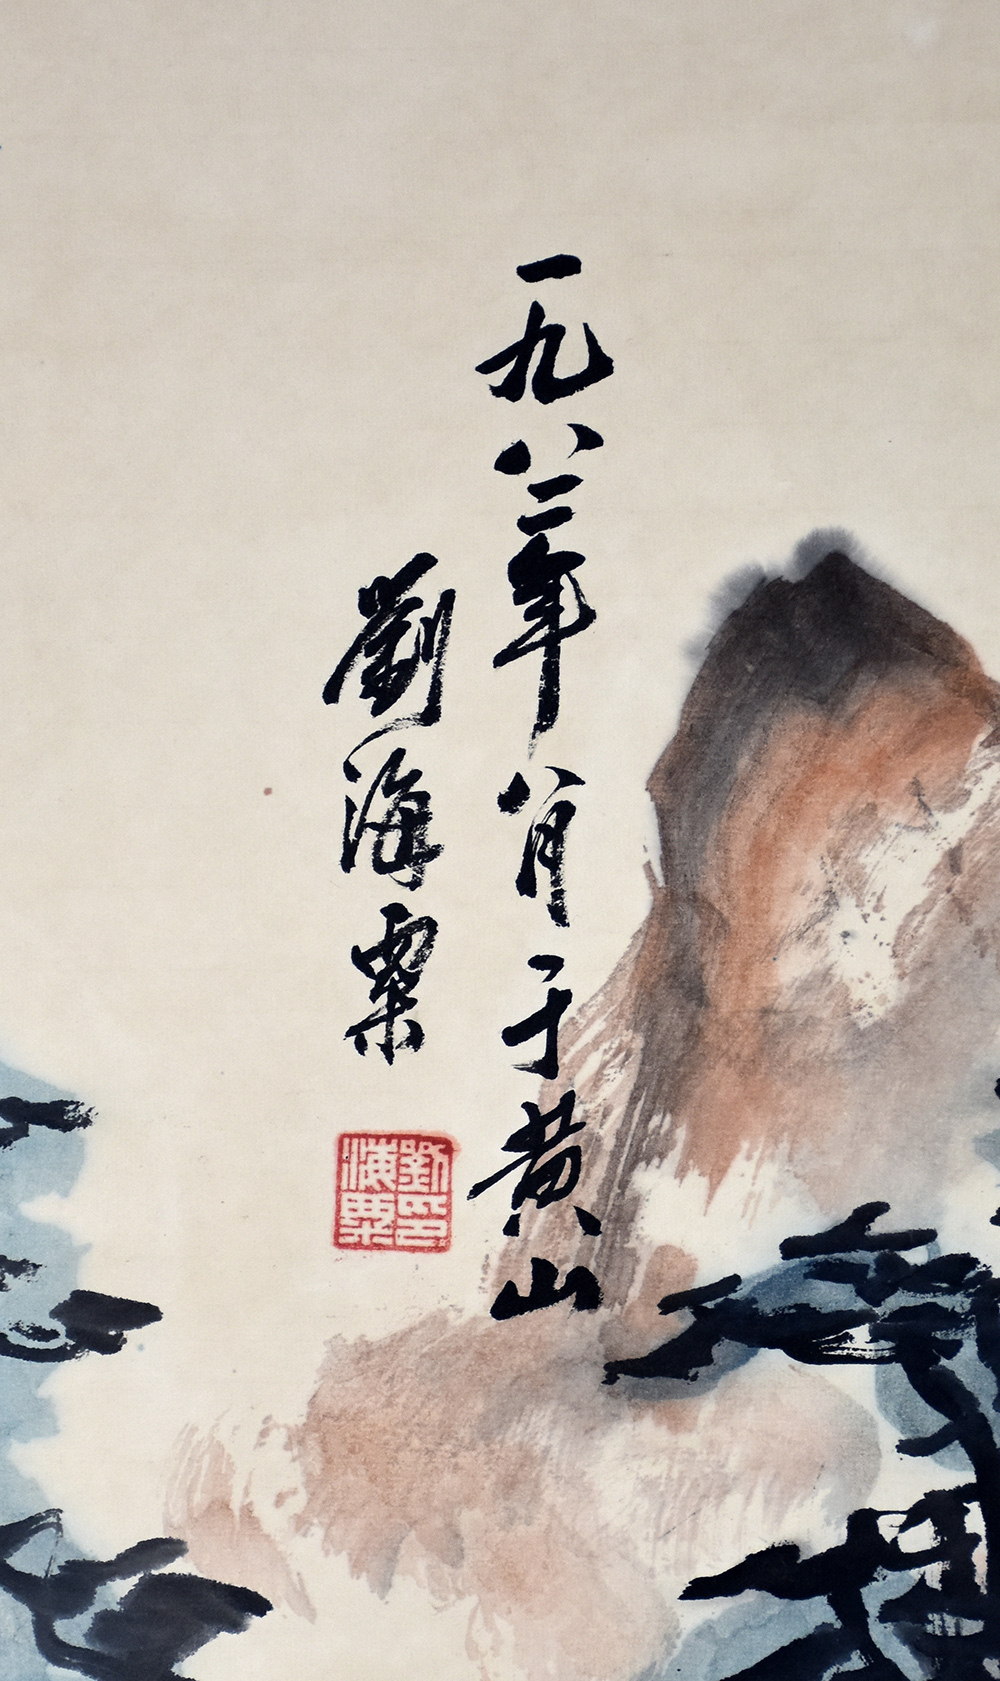 一九八二年八月于黄山
劉海粟
劉海粟印